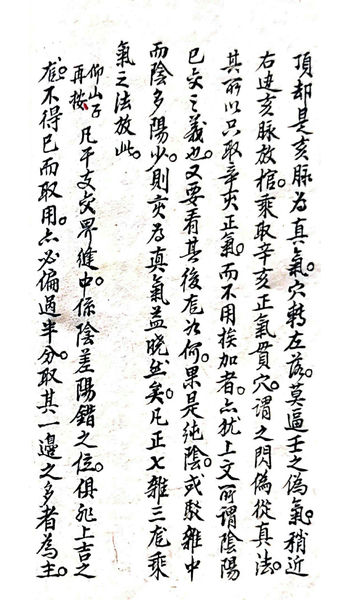 頂却是亥脉為真氣。穴轉左落。莫逼壬之偽氣。稍近
右边亥脉放棺。乘取辛亥正氣貫穴。謂之閃偽從真法。
其所以只取辛亥正氣。而不用挨加者。亦犹上文所謂陰陽
已交之義也。又要看其後龙如何。果是純陰或駁雜中
而陰多陽少。則亥為真氣益曉然矣。凡正七雜三龙乘
氣之法放此。
仰山子
再按 凡干支交界縫中。係陰差陽錯之位。俱非上吉之
龙。不得已而取用。亦必偏過半分。取其一邊之多者為主。